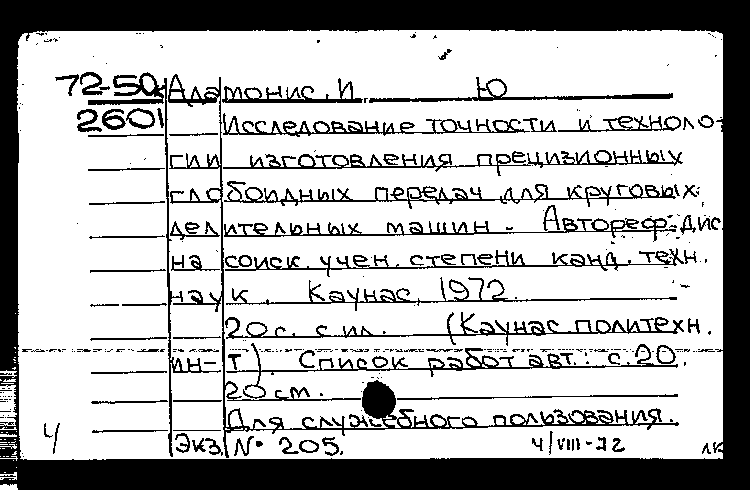 72-50к Адамонис, И. Ю
2601 Исследование точности и техноло-
гии изготовления прецизионных
глобоидных передач для круговых
делительных машин. Автореф. дис.
на соиск. учен. степени канд. техн.
наук. Каунас, 1972.
20 с. с ил. (Каунас. политехн.
ин-т). Список работ авт.: с. 20.
20 см.
Для служебного пользования.
4 Экз. № 205. 4/VIII-72 ЛК